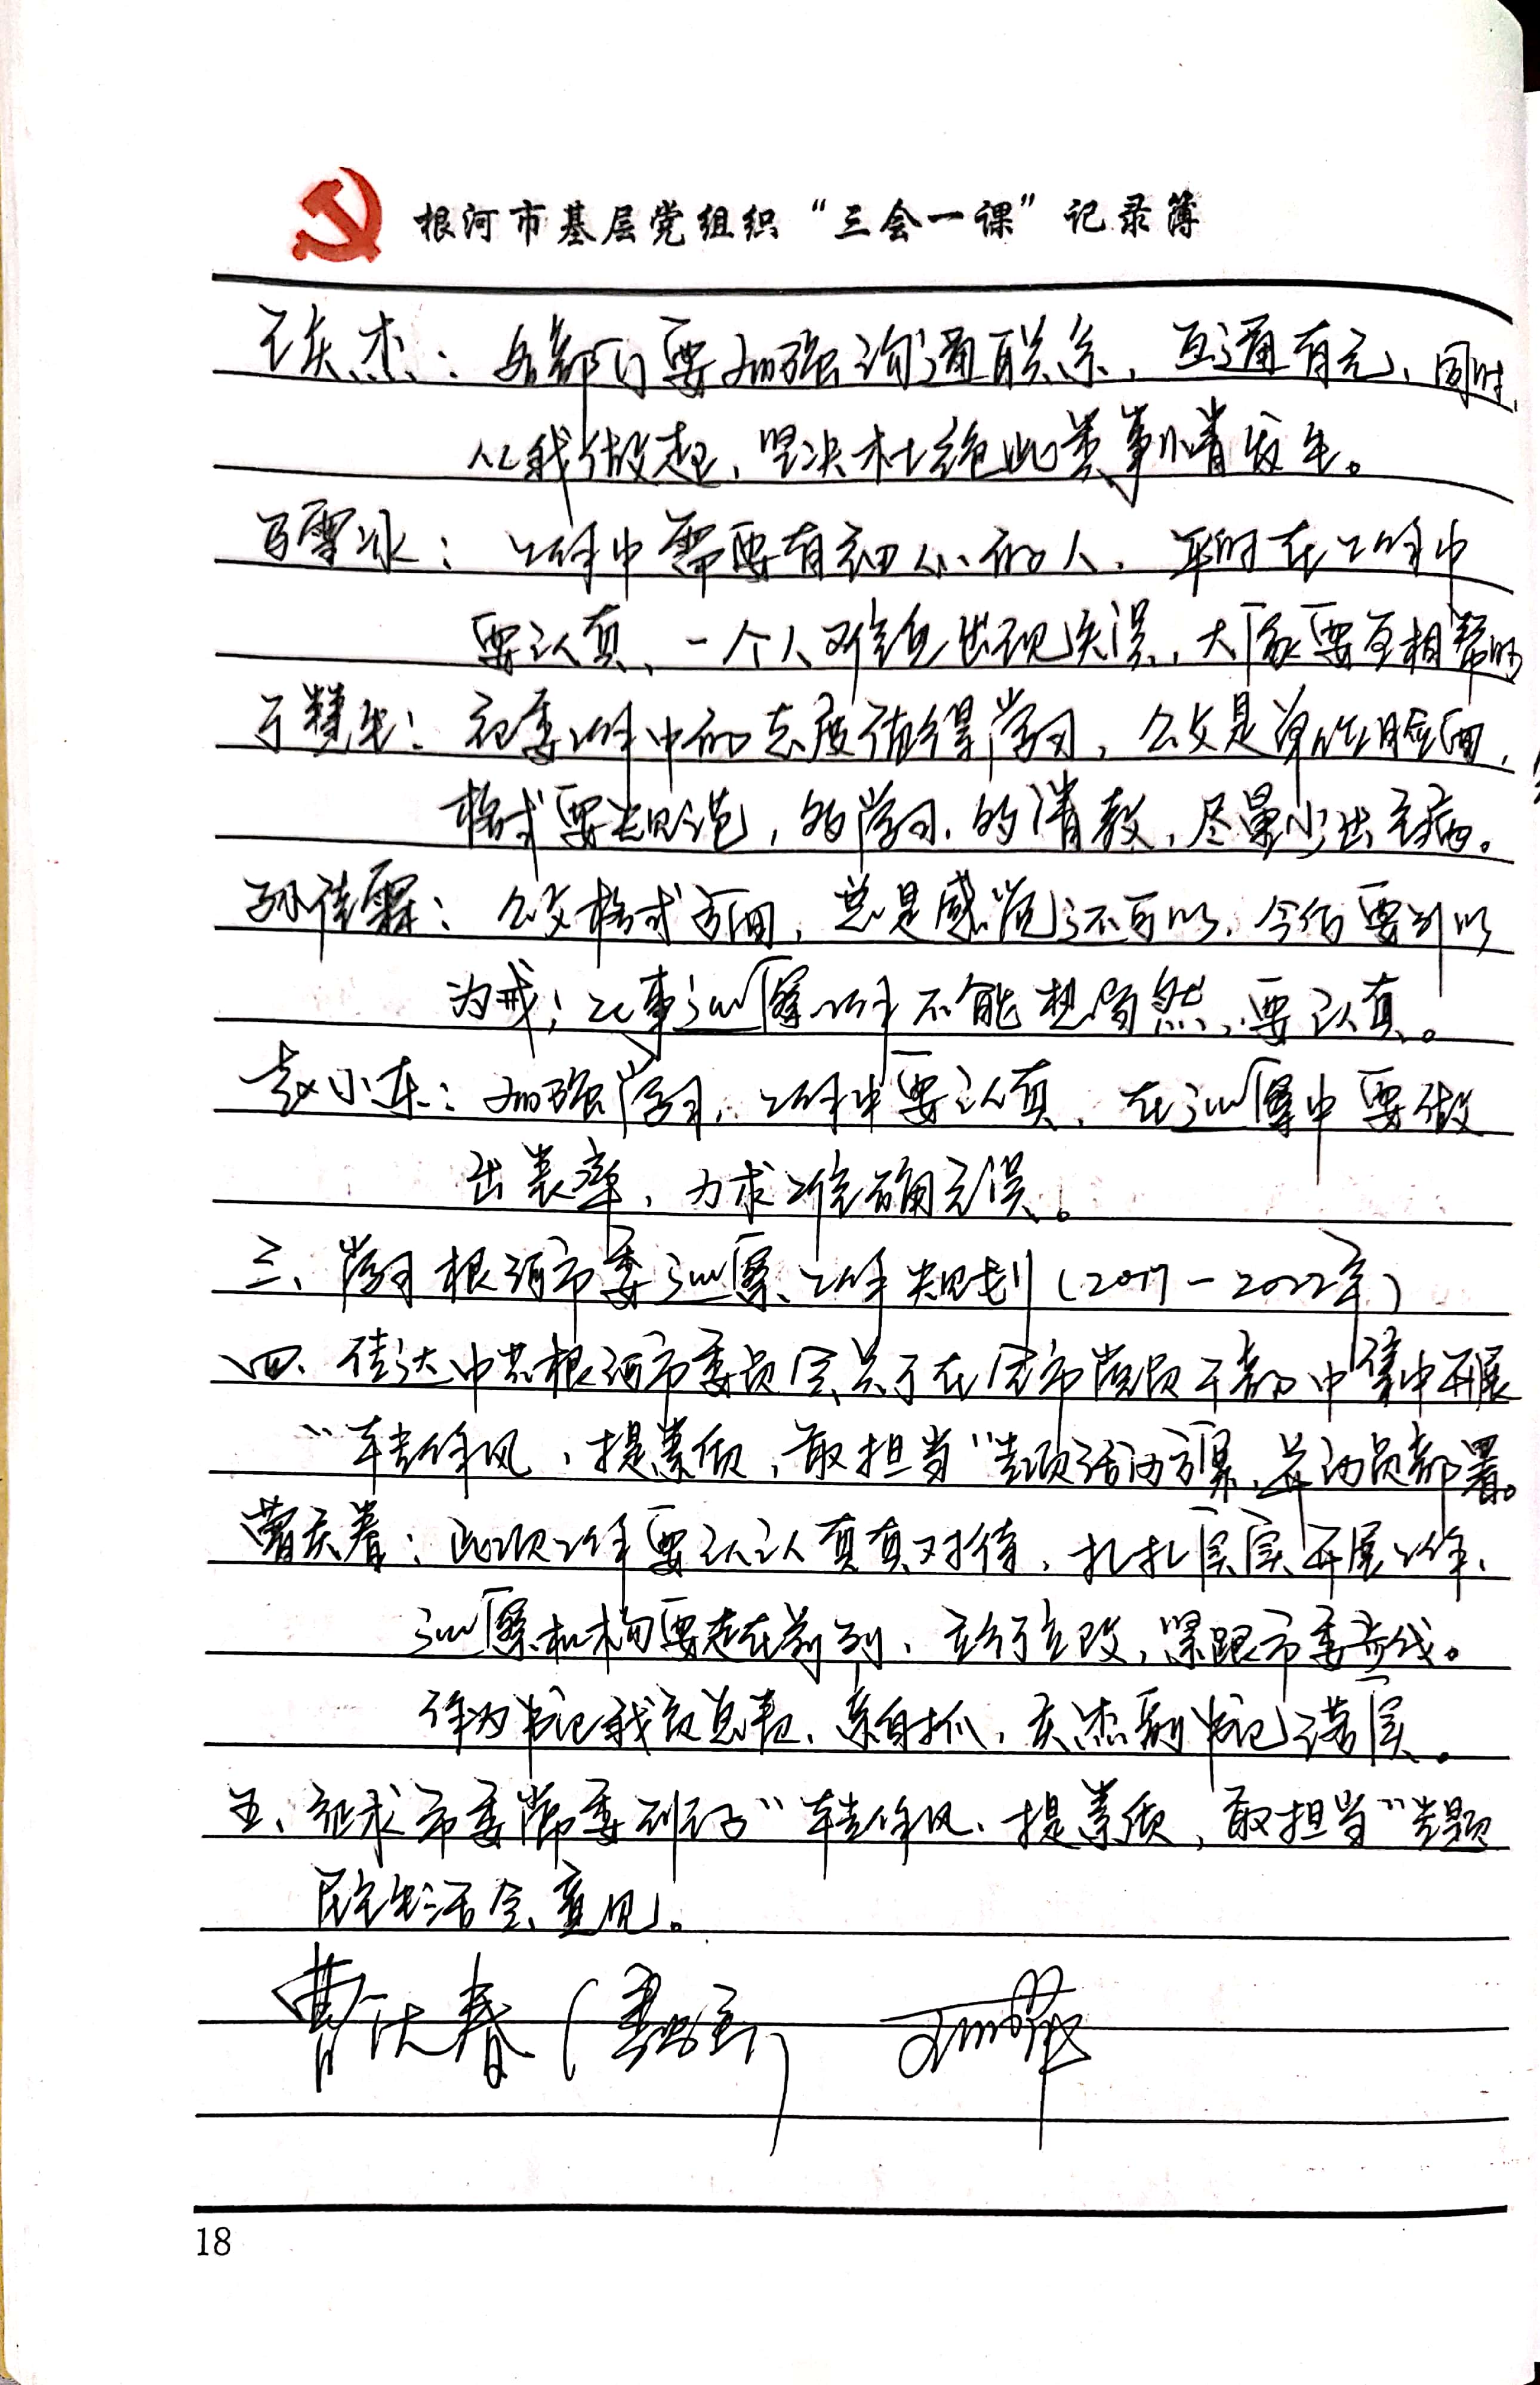 根河市基层党组织“三会一课”记录簿
王庆杰：各部门要加强沟通联系，互通有无，同时，
从我做起，坚决杜绝此类事情发生。
马雪冰：工作中需要有细心的人，平时在工作中
要认真，一个人难免出现失误，大家要互相帮助
于赞生：纪委工作中的态度值得学习，公文是单位脸面，
格式要规范，多学习，多请教，尽量少出毛病。
孙佳霖：公文格式方面，总是感觉还可以，今后要引以
为戒；从事巡察工作不能想当然，要认真。
赵小东：加强学习，工作中要认真，在巡察中要做
出表率，力求准确无误。
三、学习根河市委巡察工作规划（2017—2022年）
四、传达中共根河市委员会关于在全市党员干部中集中开展
“转作风，提素质，敢担当”专项活动方案，并动员部署。
曹庆春：此项工作要认认真真对待，扎扎实实开展工作，
巡察机构要走在前列，立行立改，紧跟市委查找。
作为书记我负总责，亲自抓，庆杰副书记落实。
五、征求市委常委班子“转作风，提素质，敢担当”专题
民主生活会意见。
曹庆春
18